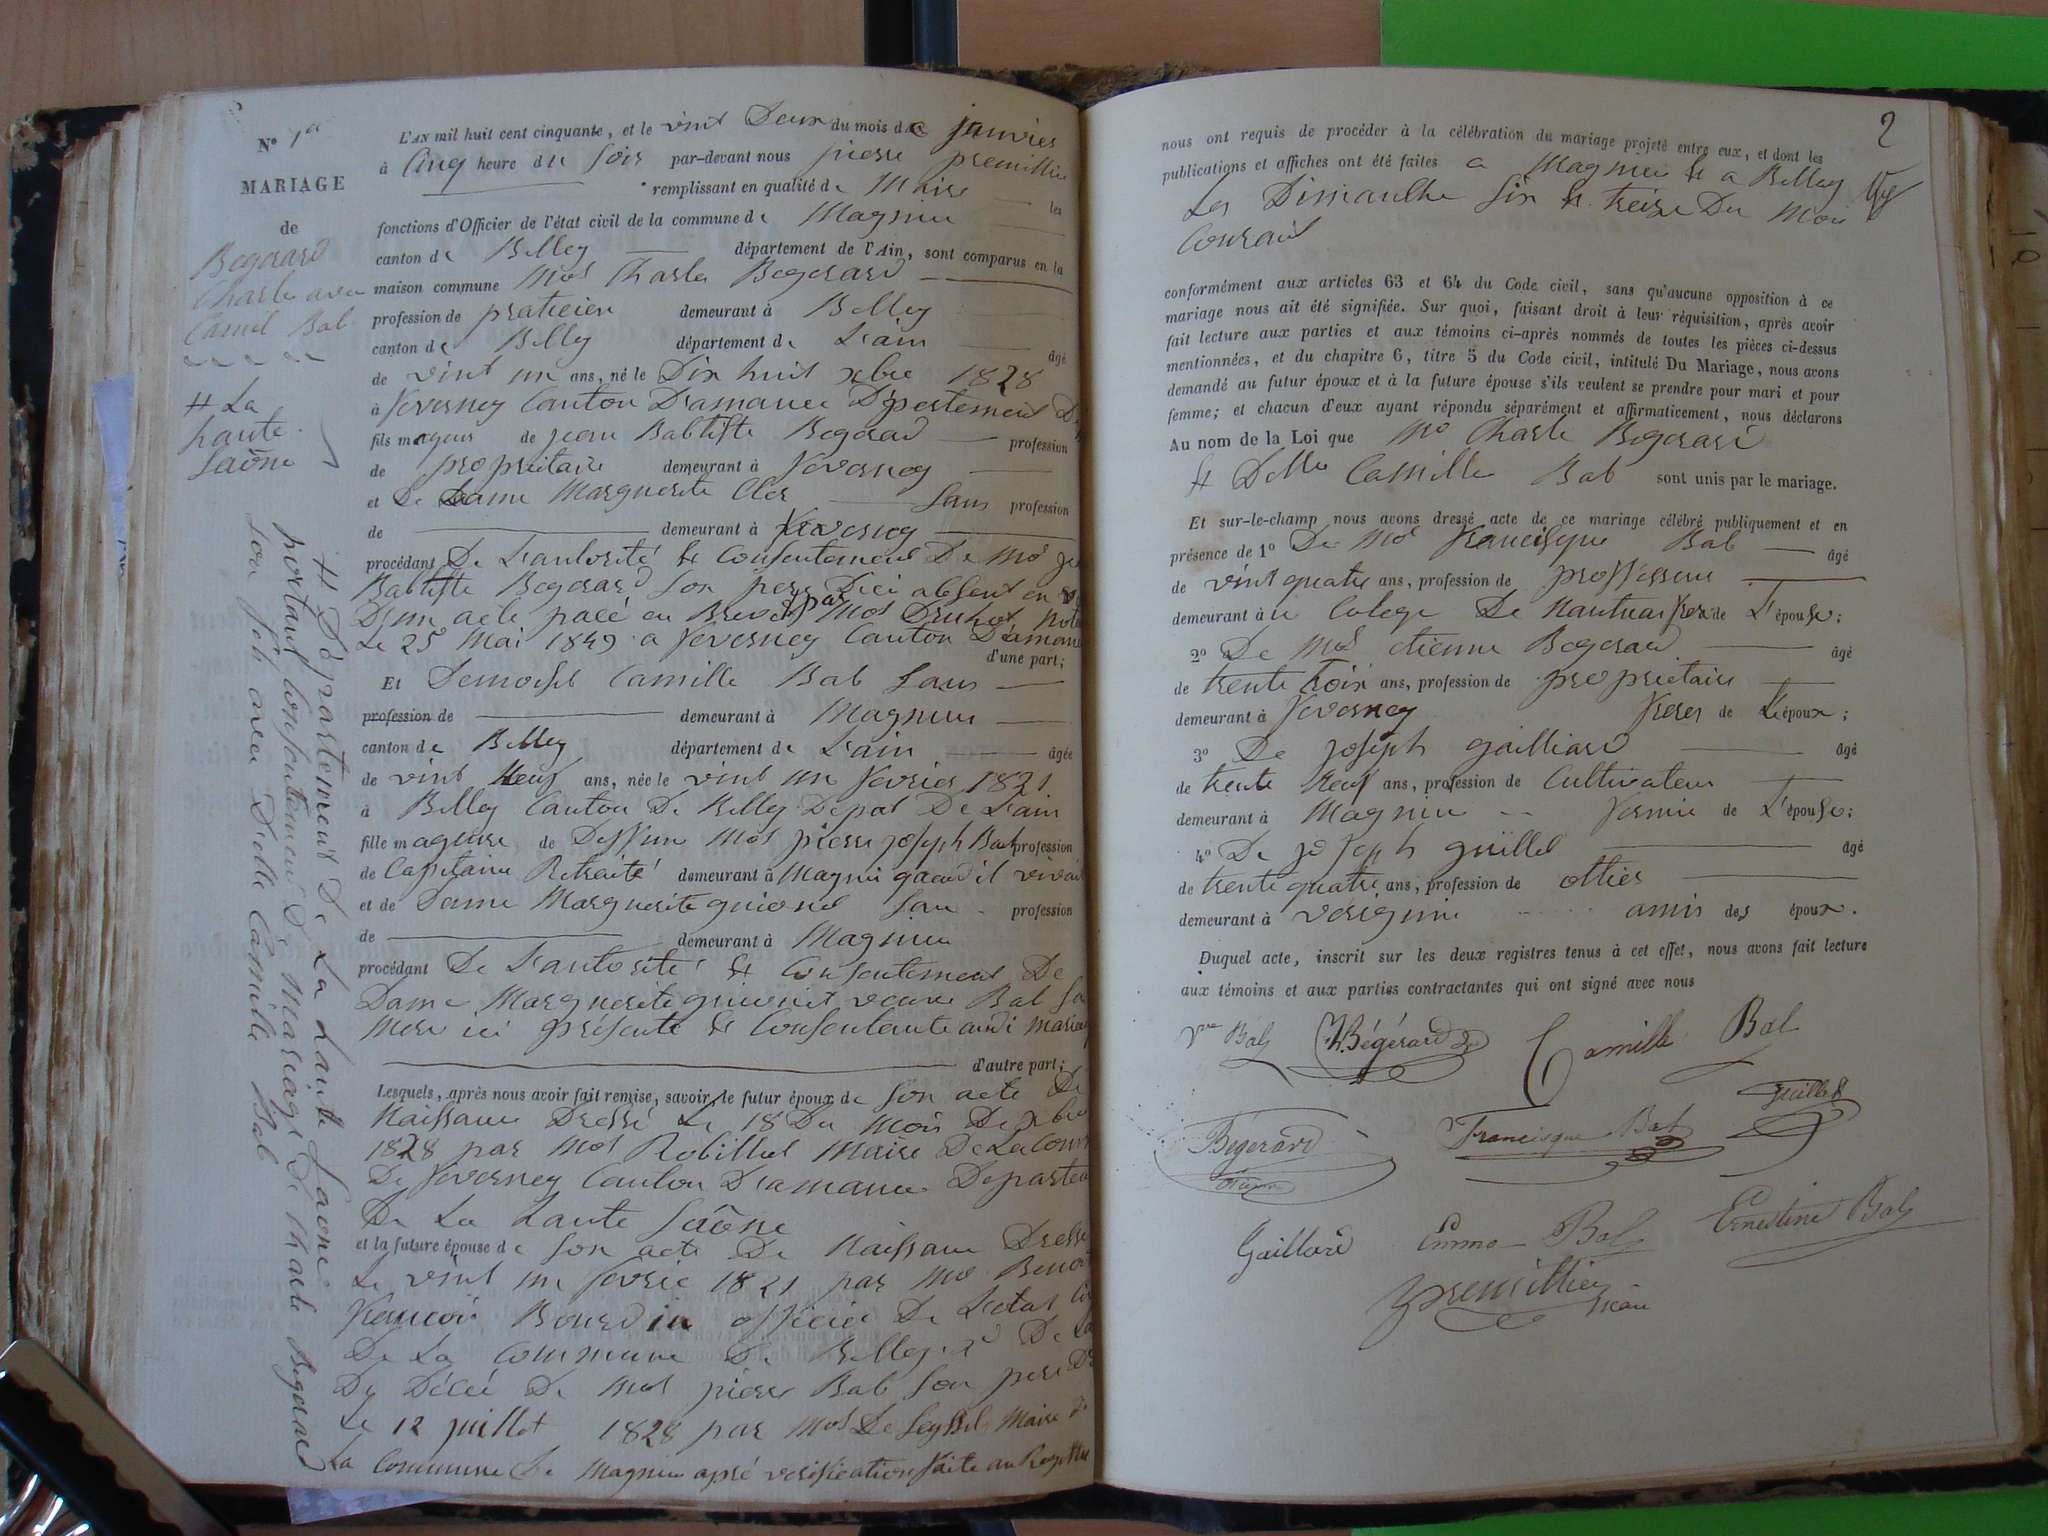 N° 1er
MARIAGE
de
Begerard
Charle avec
Camil Bal
# La
haute
Saône
# Département De La haute Saône
portant consentement D' mariage De Charle Begerard
son fils avec Delle Camille Bal
L'AN mil huit cent cinquante, et le vint Deux du mois de janvier
à Cinq heure du soir par-devant nous pierre premillieu
remplissant en qualité de Maire les
fonctions d'Officier de l'état civil de la commune de Magnieu
canton de Belley département de l'Ain, sont comparus en la
maison commune Mos Charle Begerard
profession de praticien demeurant à Belley
canton de Belley département de L'ain âgé
de vint un ans, né le Dix huit xbre 1828
à fervesney Canton D'amance Département De
fils mageur de jean Babtiste Begerard profession
de propriétaire demeurant à fervesney
et de Dame Marguerite Cler Sans profession
de demeurant à fervesney
procédant De L'autorité & Consentement De Mos
Babtiste Begerard son pere D'ici absent en
D'un acte passé en Brevet par Mos Druhot
Le 25 Mai 1849 a fervesney Canton D'amance
d'une part;
Et Demoisel Camille Bal Sans
profession de demeurant à Magnieu
canton de Belley département de L'ain âgée
de vint Neuf ans, née le vint un fevrier 1821
à Belley Canton De Belley Depat De L'ain
fille mageure de Deffun Mos pierre joseph Bal profession
de Capitaine Retraité demeurant à Magnieu quand il vivait
et de Dame Marguerite guionet San profession
de demeurant à Magnieu
procédant De L'autorité & Consentement De
Dame Marguerite guionet veuve Bal Sa
Mere ici présente & Consentante audi mariage
d'autre part;
Lesquels, après nous avoir fait remise, savoir le futur époux de son acte De
Naissance Dressé Le 18 Du Mois De xbre
1828 par Mos Robillet Maire De La Commune
De fervesney Canton D'amance Departem
De La haute Saône
et la future épouse de son acte De Naissance Dressé
Le vint un fevrie 1821 par Mos Benoi
francois Bourdin officier De L'etat Civ
De La Commune De Belley & De La
Du Décé De Mos pierre Bal son pere
Le 12 juillet 1828 par Mos De Seyssel Maire de
La Commune De Magnieu apré verification faite au Registre
2
nous ont requis de procéder à la célébration du mariage projeté entre eux, et dont les
publications et affiches ont été faites a Magnieu & a Belley
Les Dimanche Six & treize Du Mois
Courant
conformément aux articles 63 et 64 du Code civil, sans qu'aucune opposition à ce
mariage nous ait été signifiée. Sur quoi, faisant droit à leur réquisition, après avoir
fait lecture aux parties et aux témoins ci-après nommés de toutes les pièces ci-dessus
mentionnées, et du chapitre 6, titre 5 du Code civil, intitulé Du Mariage, nous avons
demandé au futur époux et à la future épouse s'ils veulent se prendre pour mari et pour
femme; et chacun d'eux ayant répondu séparément et affirmaticement, nous déclarons
Au nom de la Loi que Mo Charle Begerard
& Delle Camille Bal sont unis par le mariage.
Et sur-le-champ nous avons dressé acte de ce mariage célébré publiquement et en
présence de 1° De Mos francisque Bal âgé
de vint quatre ans, profession de professeur
demeurant à u Colege De Nantua frer de L'épouse;
2° De Mos etienne Begerard âgé
de trente trois ans, profession de propriétaire
demeurant à fervesney frere de L'époux;
3° De joseph gailliard âgé
de trente Neuf ans, profession de Cultivateur
demeurant à Magnieu fermie de L'épouse;
4° De joseph guillet âgé
de trente quatre ans, profession de
demeurant à verignin amis des époux.
Duquel acte, inscrit sur les deux registres tenus à cet effet, nous avons fait lecture
aux témoins et aux parties contractantes qui ont signé avec nous
vve Bal Ch. Bégérard Camille Bal
Guillet
Begerard Francisque Bal
Etienne
Gaillard Emma Bal Ernestine Bal
premillieu
Maire